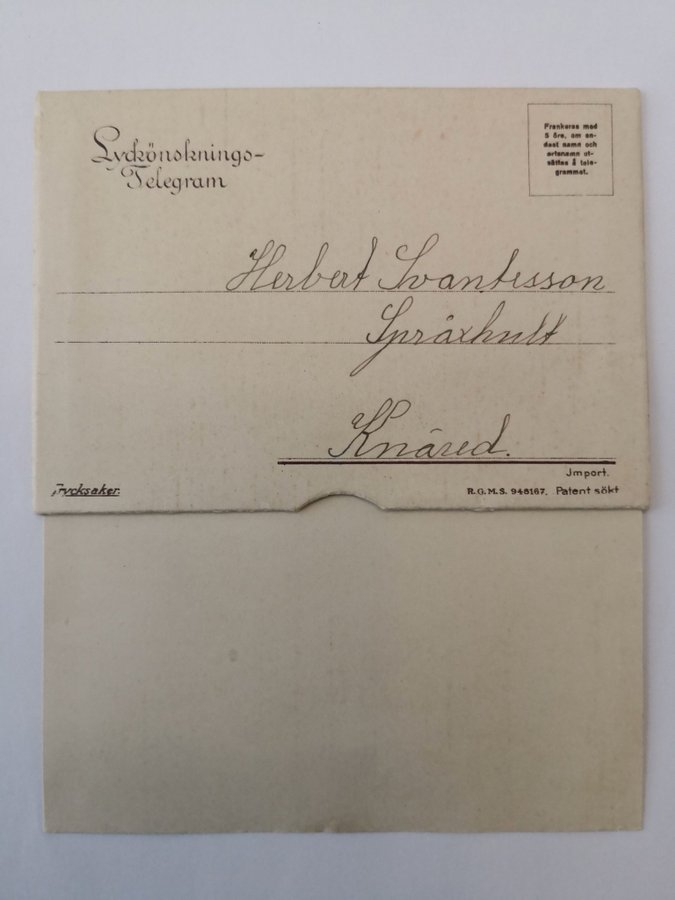 Lyckönsknings-
Telegram
Frankeras med
5 öre, om en-
dast namn och
ortsnamn ut-
sättes å tele-
grammet.
Herbert Svantesson
Språxhult
Knäred.
Import.
Trycksaker.
R.G.M.S. 948167. Patent sökt